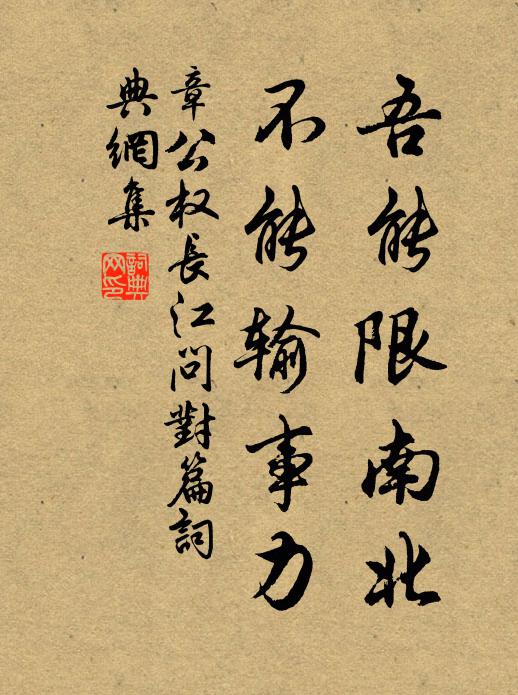 吾能限南北
不能输事力
章公权長江問對篇詞
典網集
詞典
网印